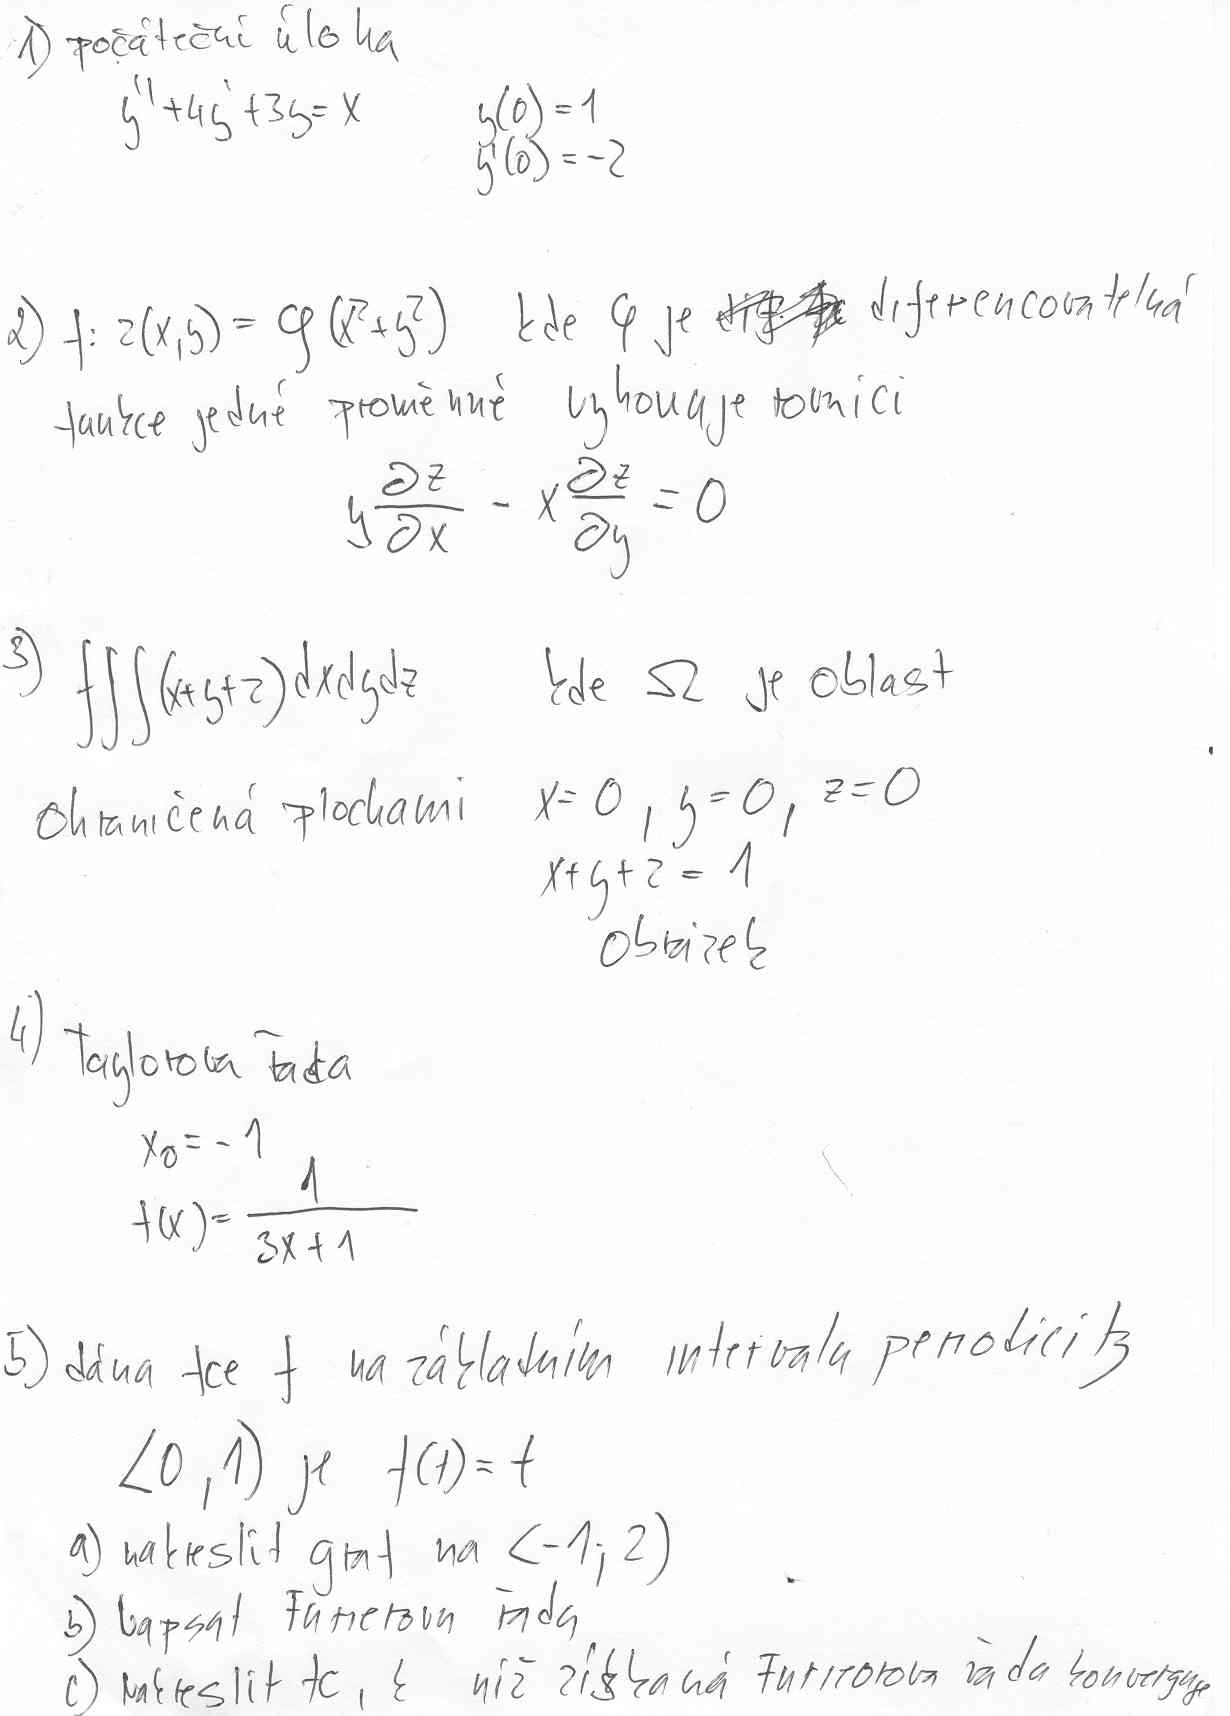 1) počáteční úloha
y''+4y'+3y=x y(0)=1
y'(0)=-2
2) f: z(x,y) = φ(x²+y²) kde φ je diferencovatelná
funkce jedné proměnné vyhovuje rovnici
y ∂z/∂x - x ∂z/∂y = 0
3) ∫∫∫(x+y+z)dxdydz kde Ω je oblast
ohraničená plochami x=0, y=0, z=0
x+y+z=1
Obrázek
4) Taylorova řada
x₀=-1
f(x)= 1/(3x+1)
5) dána fce f na základním intervalu periodicity
<0,1) je f(t)=t
a) nakreslit graf na <-1;2)
b) Furierova řada
c) nakreslit fc, k níž získaná Furierorova řada konverguje